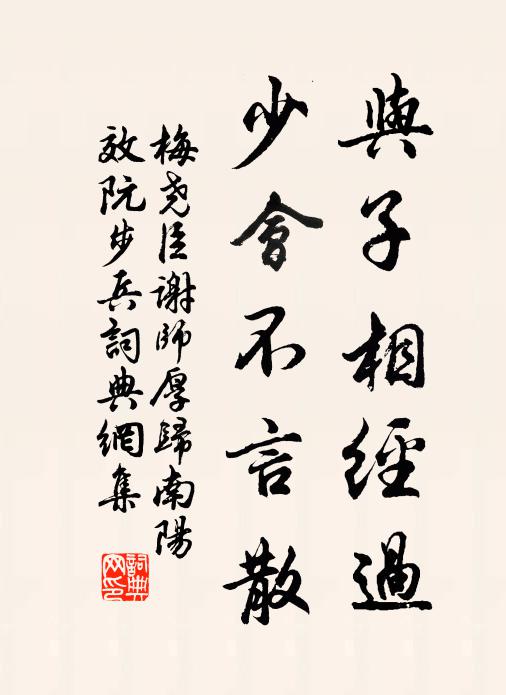 與子相經過
少會不言散
梅堯臣謝師厚歸南陽
效阮步兵詞典網集
詞典網印